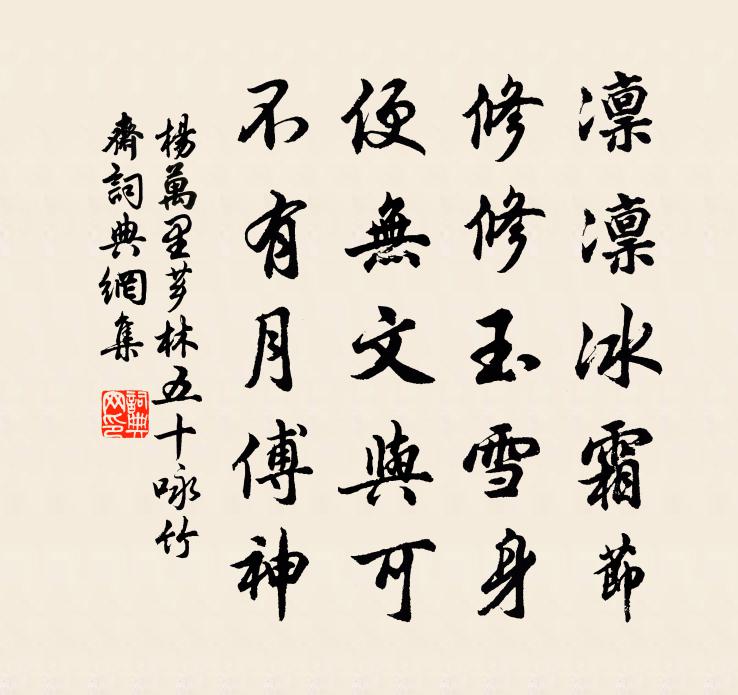 凛凛冰霜節
修修玉雪身
便無文與可
不有月傅神
楊萬里芗林五十咏竹
齋詞典網集
詞典网